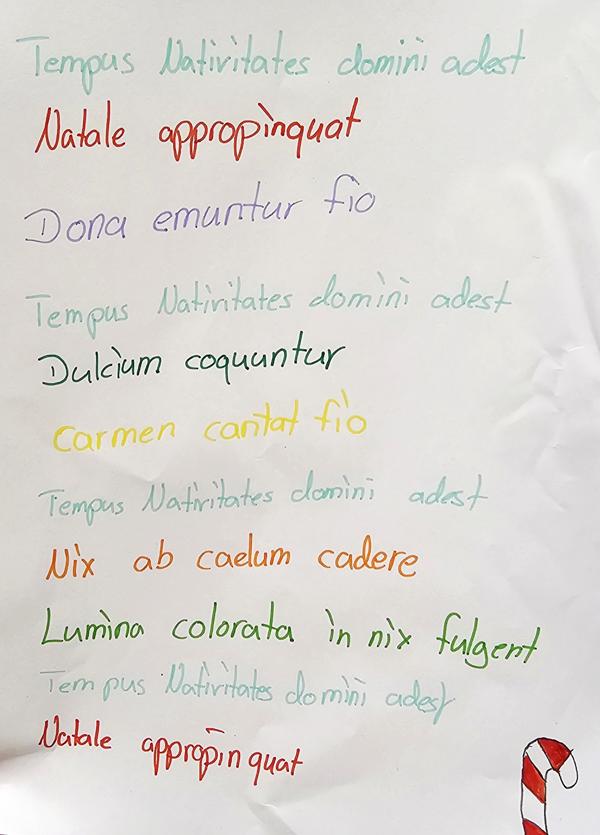 Tempus Nativitates domini adest
Natale appropinquat
Dona emuntur fio
Tempus Nativitates domini adest
Dulcium coquuntur
Carmen cantat fio
Tempus Nativitates domini adest
Nix ab caelum cadere
Lumina colorata in nix fulgent
Tempus Nativitates domini adest
Natale appropinquat